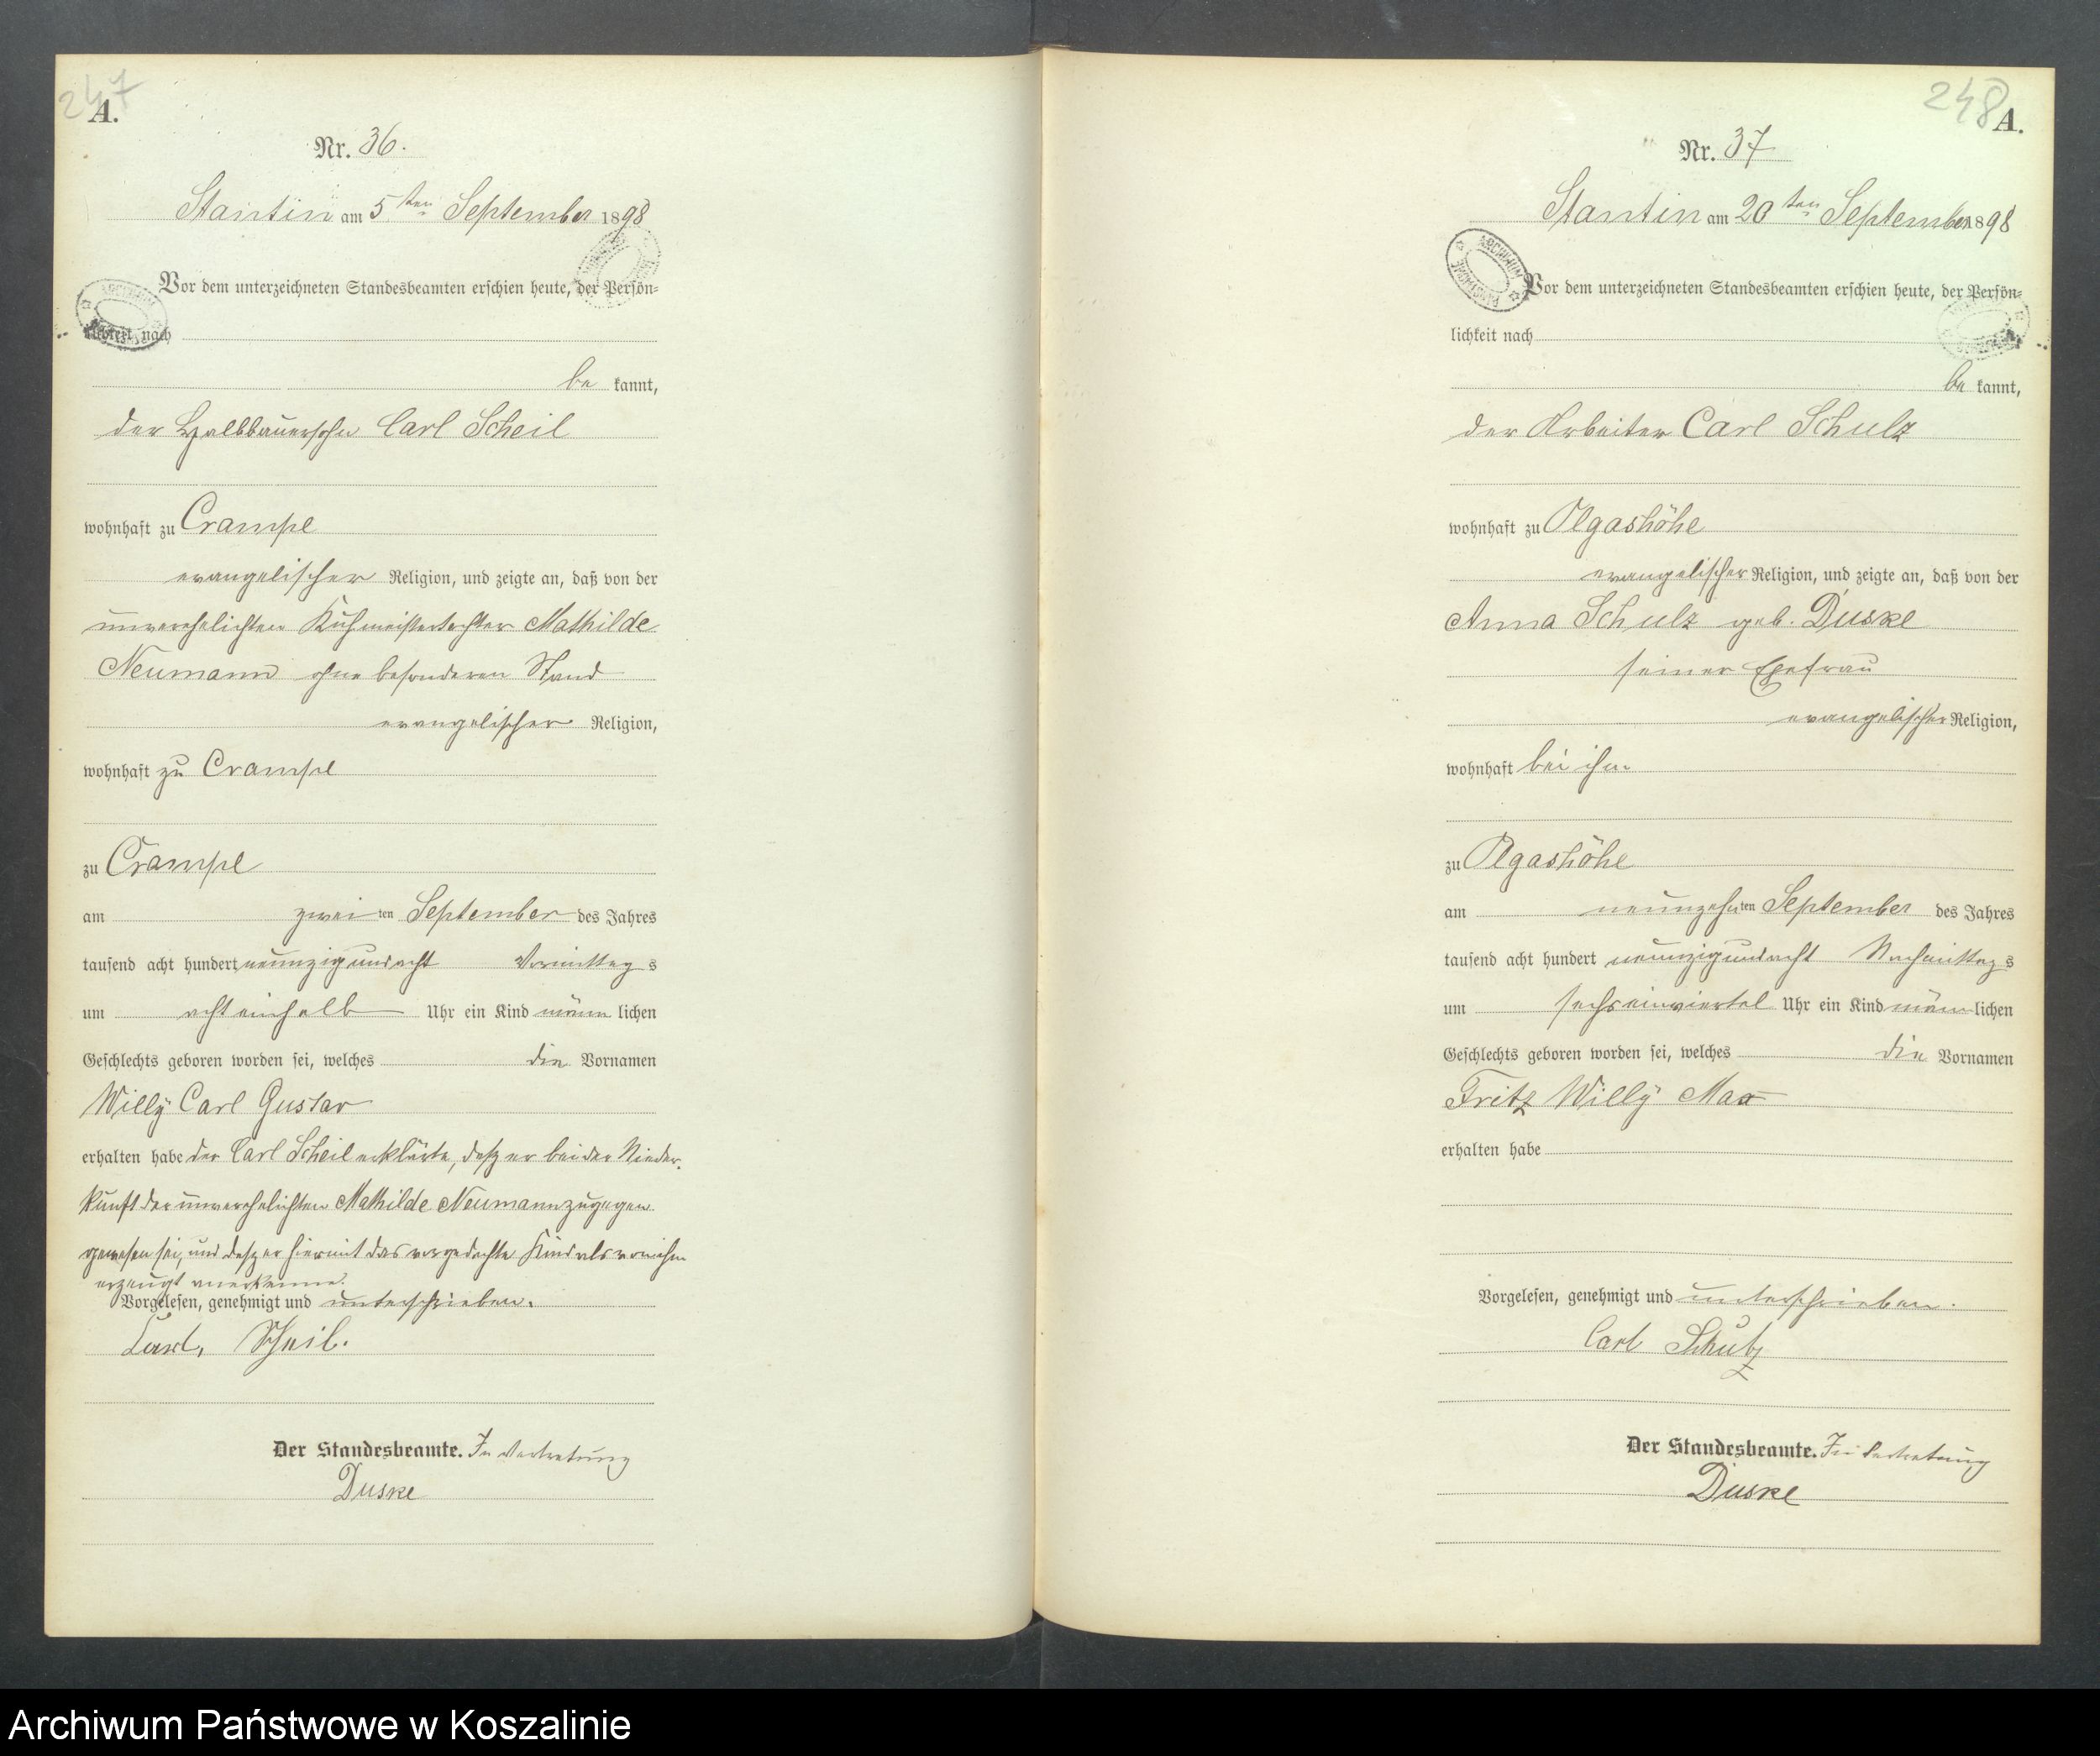 247
A.
Nr. 36.
Stantin am 5ten September 1898
Vor dem unterzeichneten Standesbeamten erschien heute, der Persön-
lichkeit nach
be kannt,
der Halbbauersohn Carl Scheil
wohnhaft zu Crampe
evangelischer Religion, und zeigte an, daß von der
unverehelichten Kuhmeistertochter Mathilde
Neumann ohne besonderen Stand
evangelischer Religion,
wohnhaft zu Crampe
zu Crampe
am zwei ten September des Jahres
tausend acht hundert neunzigundacht Vormittag s
um achteinhalb Uhr ein Kind männ lichen
Geschlechts geboren worden sei, welches die Vornamen
Willy Carl Gustav
erhalten habe der Carl Scheil erklärte, daß er bei der Nieder-
kunft der unverehelichten Mathilde Neumann zugegen
gewesen sei, und daß er hiermit das vorgedachte Kind als von ihm
erzeugt anerkenne.
Vorgelesen, genehmigt und unterschrieben.
Carl, Scheil.
Der Standesbeamte. In Vertretung
Duske
248
A.
Nr. 37
Stantin am 20ten September 1898
ARCHIWUM
Vor dem unterzeichneten Standesbeamten erschien heute, der Persön-
lichkeit nach
be kannt,
der Arbeiter Carl Schulz
wohnhaft zu Olgashöhe
evangelischer Religion, und zeigte an, daß von der
Anna Schulz geb. Duske
seiner Ehefrau
evangelischer Religion,
wohnhaft bei ihm
zu Olgashöhe
am neunzehn ten September des Jahres
tausend acht hundert neunzigundacht Nachmittag s
um sechseinviertel Uhr ein Kind männ lichen
Geschlechts geboren worden sei, welches die Vornamen
Fritz Willy Max
erhalten habe
Vorgelesen, genehmigt und unterschrieben.
Carl Schulz
Der Standesbeamte. In Vertretung
Duske
Archiwum Państwowe w Koszalinie